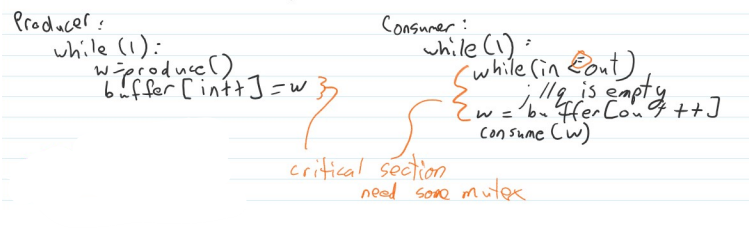 Producer:
while (1):
w=produce()
buffer[in++] = w
Consumer:
while(1):
while(in == out)
; //q is empty
w = buffer[out++]
consume(w)
critical section
need some mutex